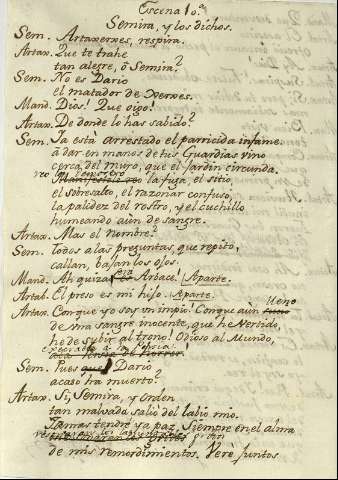 Escena 10.ª
Semira, y los dichos.
Sem. Artaxerxes, respira.
Artax. Que te trahe
tan alegre, ó Semira?
Sem. No es Dario
el matador de Xerxes.
Mand. Dios! Que oigo!
Artax. De donde lo has sabido?
Sem. Ya està arrestado el parricida infame.
á dar en manos de tus Guardias vino
cerca del muro, que el jardin circunda.
reo lo
la fuga, el sitio,
el sobresalto, el razonar confuso,
la palidez del rostro, y el cuchillo
humeando aùn de sangre.
Artax. Mas el nombre?
Sem. Todos a las preguntas, que repito,
callan, bajan los ojos.
Mand. Ah quizà es Arbace! Aparte.
Artab. El preso es mi hijo. Aparte.
Artax. Conque yo soy un impio! Conque aùn lleno
de una sangre inocente, que he vertido,
he de subir al trono! Odioso al Mundo,
a la Persia
horror.
Sem. Pues que Dario
acaso ha muerto?
Artax. Si, Semira, y orden
tan malvada saliò del labio mio.
Jamas tendrè ya paz. Siempre en el alma
los
gritos
de mis remordimientos. Verè juntos